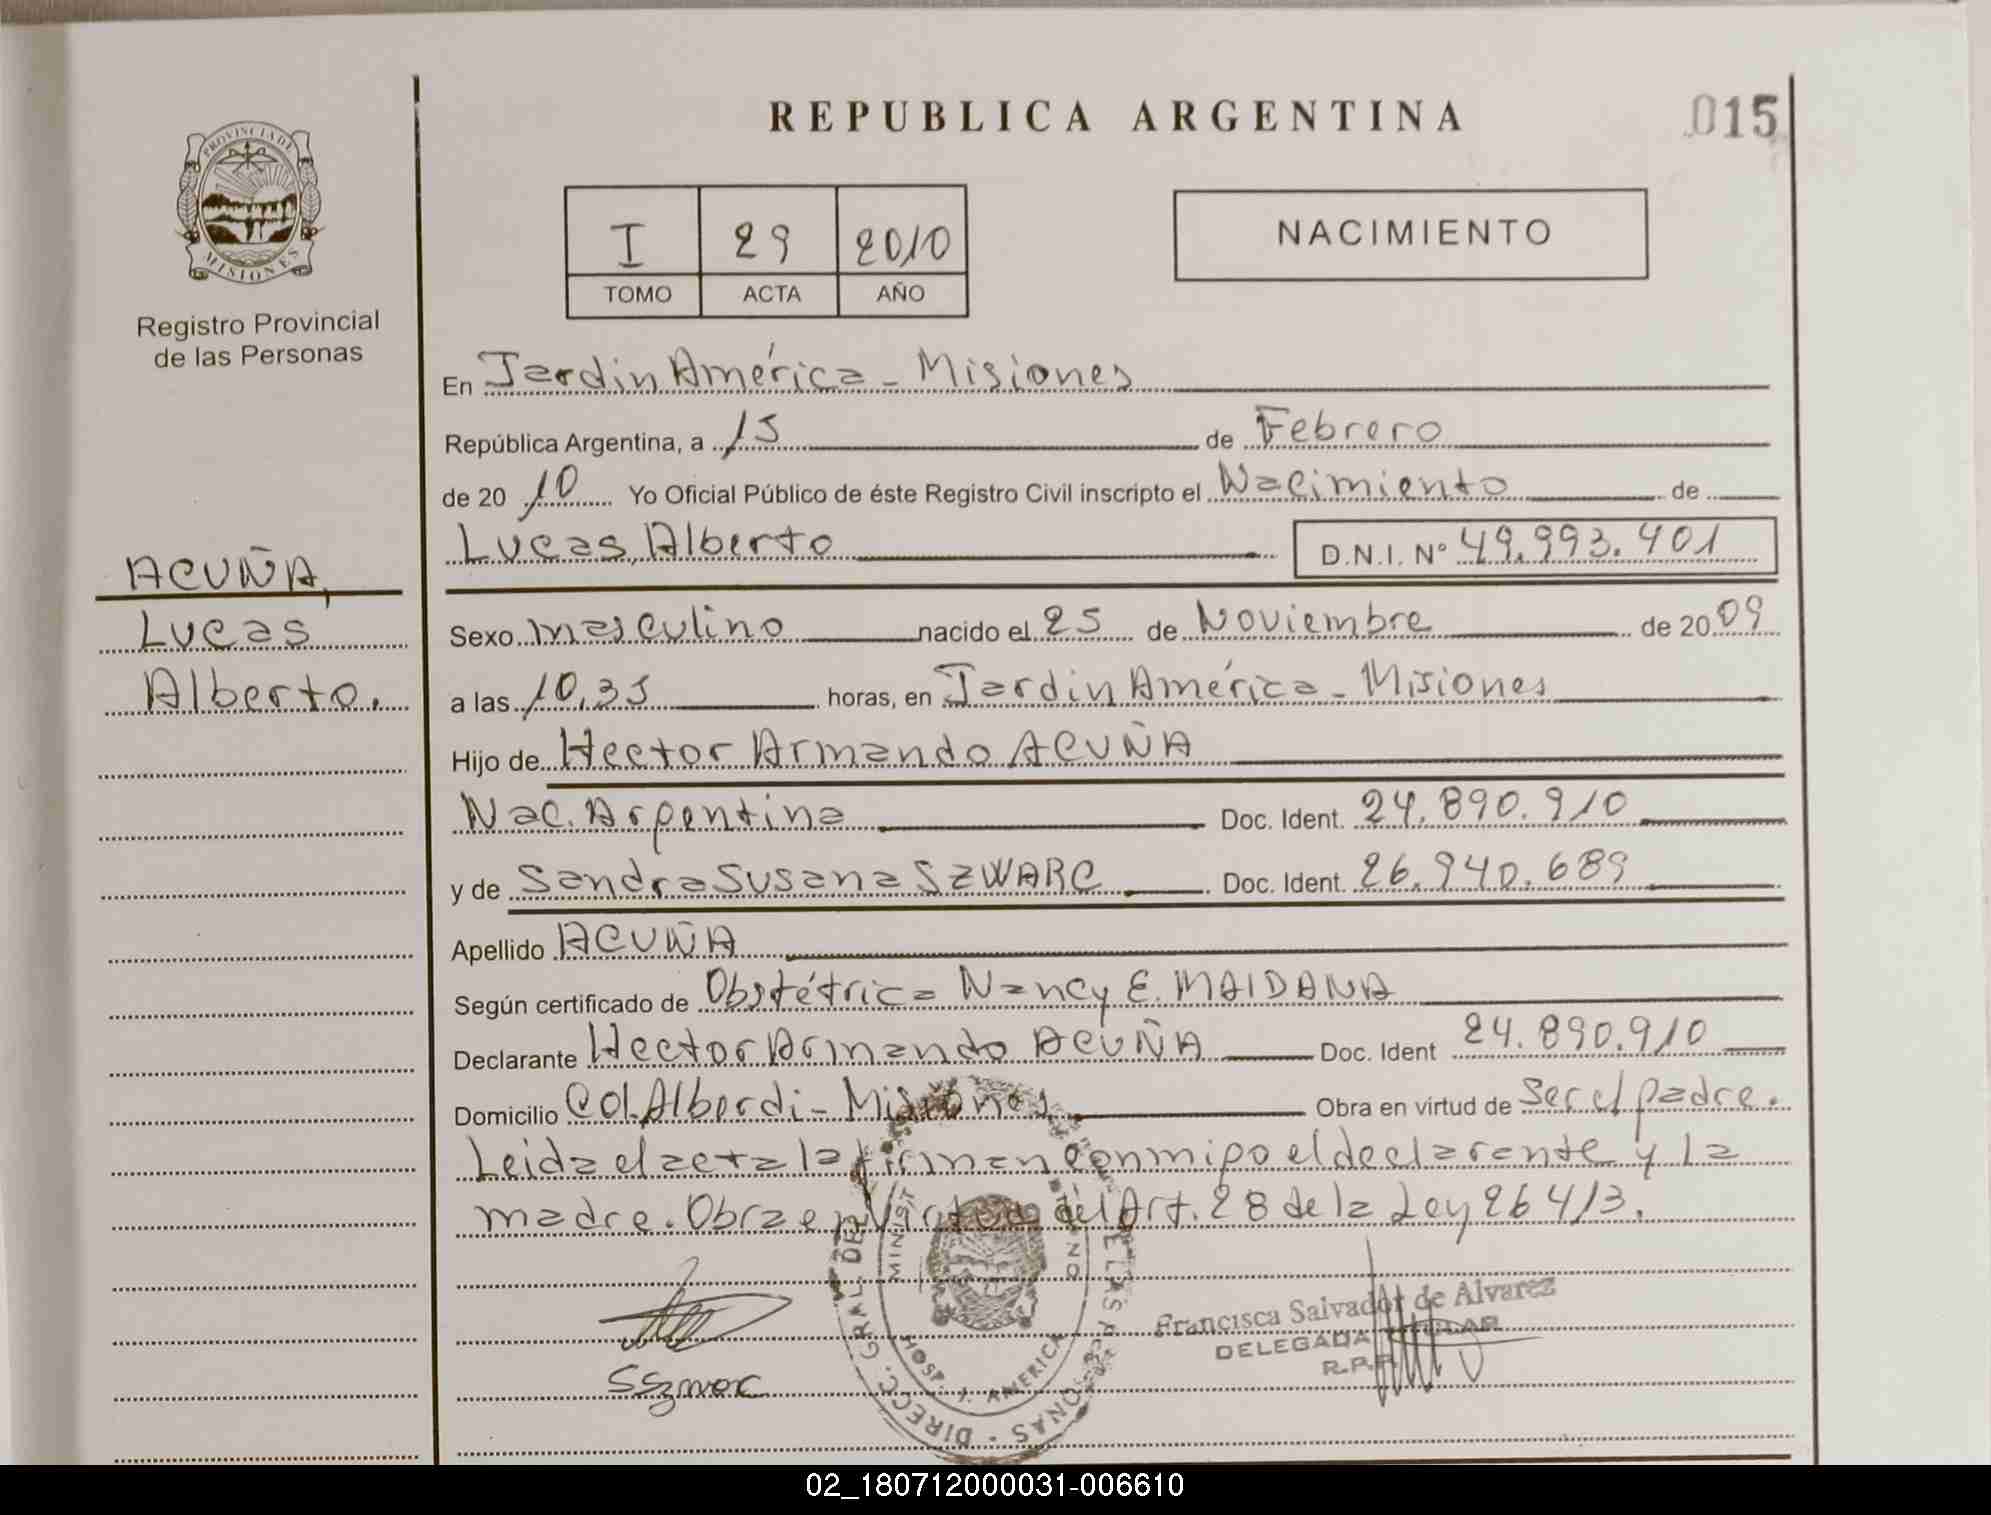 REPUBLICA ARGENTINA
015
PROVINCIA DE
MISIONES
Registro Provincial
de las Personas
I 29 2010
TOMO ACTA AÑO
NACIMIENTO
En Jardin América - Misiones
República Argentina, a 15 de Febrero
de 20 10 Yo Oficial Público de éste Registro Civil inscripto el Nacimiento de
Lucas Alberto D.N.I. Nº 49.993.401
ACUÑA,
Lucas
Alberto.
Sexo masculino nacido el 25 de Noviembre de 20 09
a las 10,35 horas, en Jardin América - Misiones
Hijo de Hector Armando ACUÑA
Nac. Argentina Doc. Ident. 24.890.910
y de Sandra Susana SZWARC Doc. Ident. 26.940.689
Apellido ACUÑA
Según certificado de Obstétrica Nancy E. MAIDANA
Declarante Hector Armando ACUÑA Doc. Ident 24.890.910
Domicilio Col. Alberdi - Misiones Obra en virtud de Ser el padre.
Leida el acta la firman conmigo el declarante y la
madre. Obra en Virtud del Art. 28 de la Ley 26413.
Francisca Salvador de Alvarez
DELEGADA
R.P.P.
DIRECC. GRAL. DE LAS PERSONAS
HOSP. J. AMERICA
02_180712000031-006610